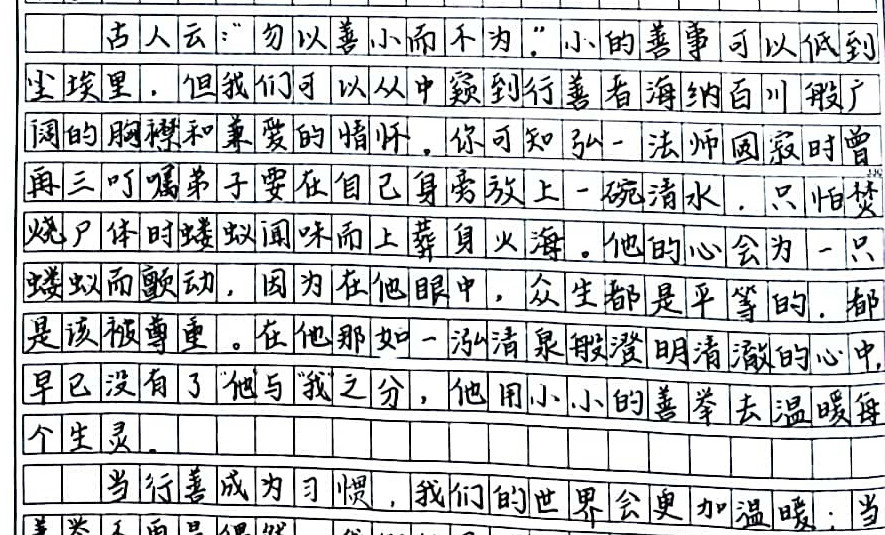 古人云:“勿以善小而不为。”小的善事可以低到
尘埃里，但我们可以从中窥到行善者海纳百川般广
阔的胸襟和兼爱的情怀。你可知弘一法师圆寂时曾
再三叮嘱弟子要在自己身旁放上一碗清水，只怕焚
烧尸体时蝼蚁闻味而上葬身火海。他的心会为一只
蝼蚁而颤动，因为在他眼中，众生都是平等的，都
是该被尊重。在他那如一泓清泉般澄明清澈的心中，
早已没有了“他”与“我”之分，他用小小的善举去温暖每
个生灵。
当行善成为习惯，我们的世界会更加温暖；当
善举不再是偶然